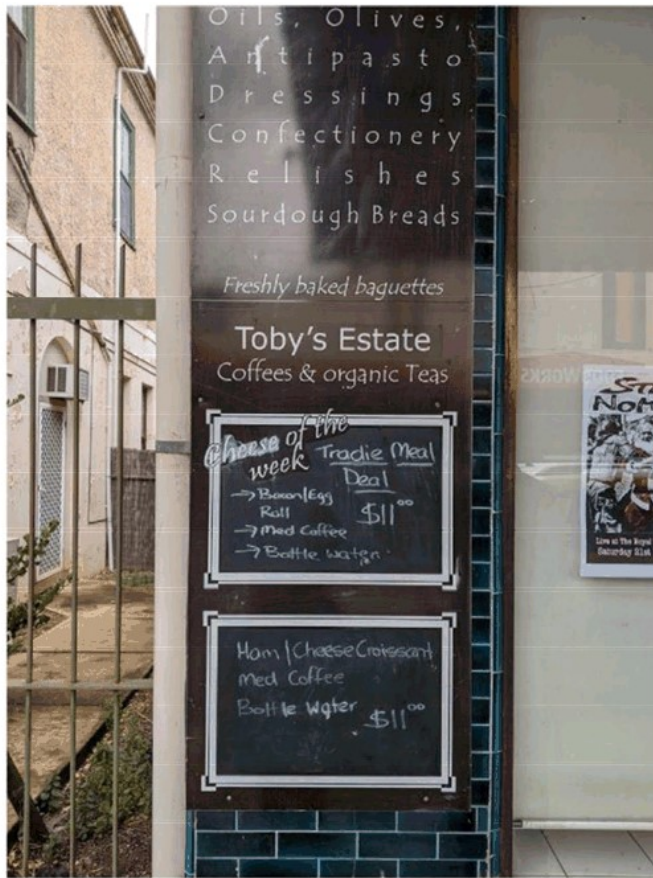 Oils, Olives,
Antipasto
Dressings
Confectionery
Relishes
Sourdough Breads
Freshly baked baguettes
Toby's Estate
Coffees & organic Teas
Cheese of the
week
Tradie Meal
Deal
→ Bacon/Egg
Roll
$11⁰⁰
→ Med Coffee
→ Bottle water
Ham / Cheese Croissant
Med Coffee
Bottle Water $11⁰⁰
Live at The Royal
Saturday 21st